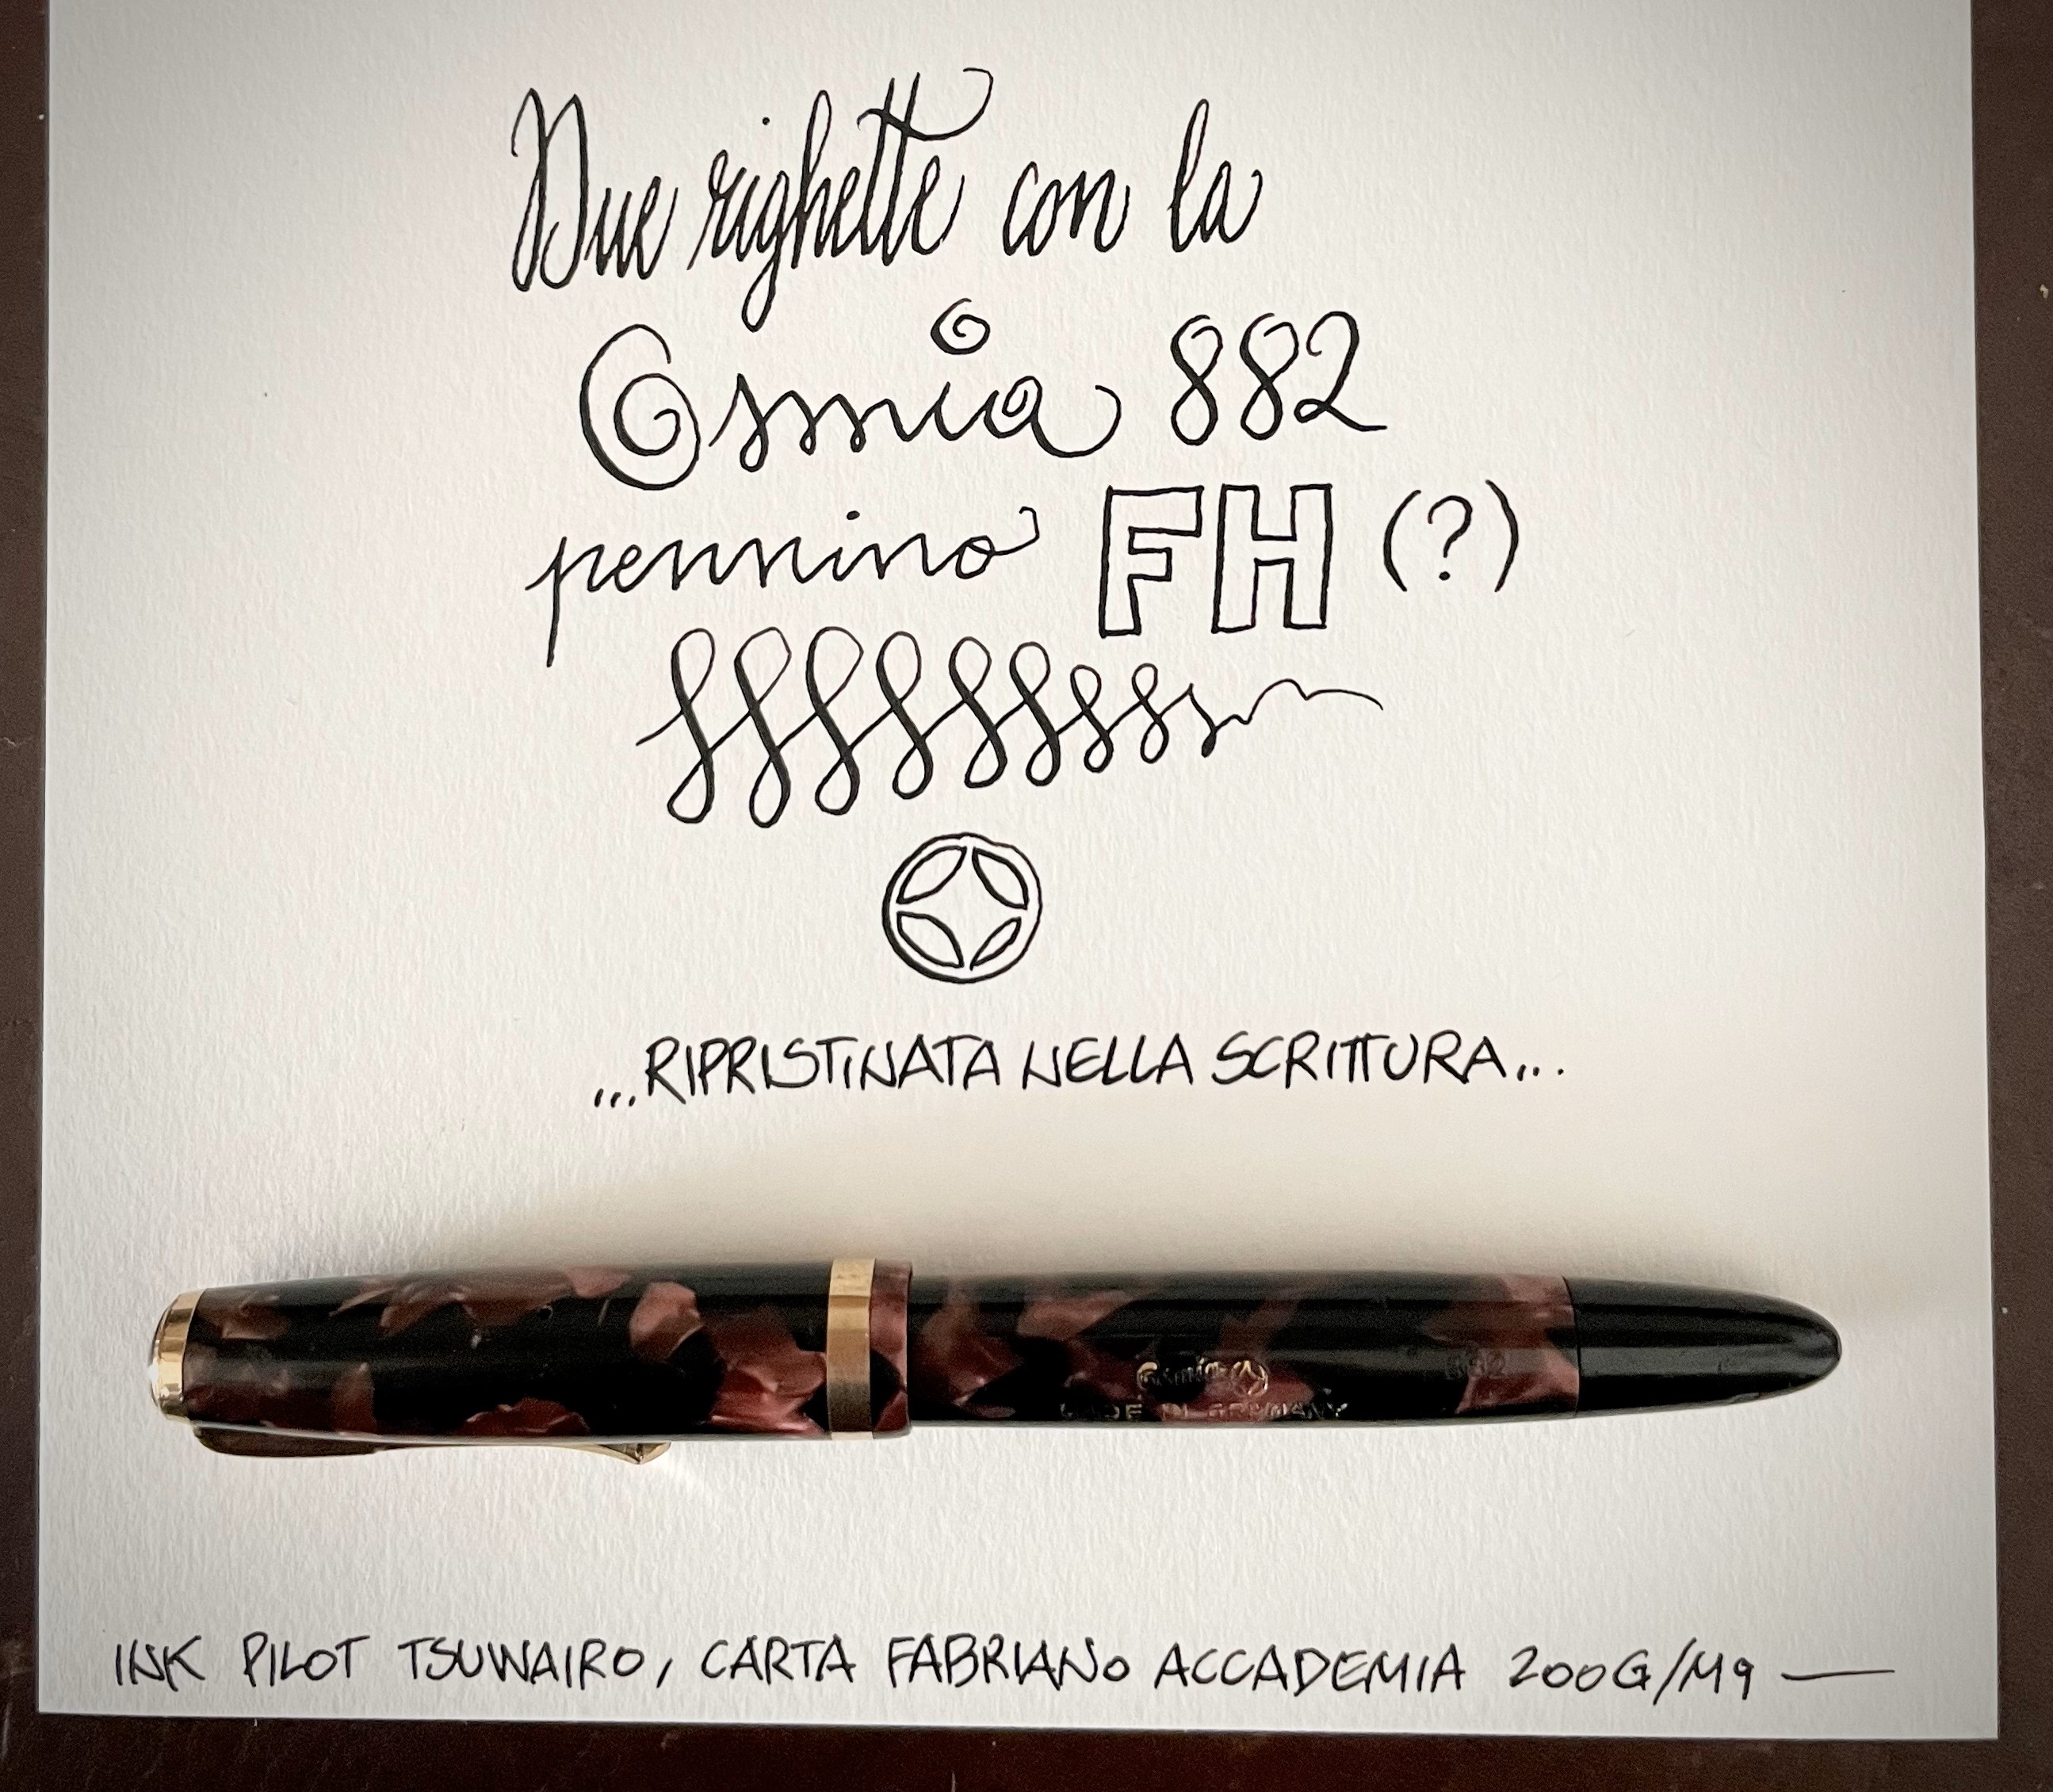 Due righette con la
Osmia 882
pennino FH (?)
...RIPRISTINATA NELLA SCRITTURA...
Osmia 882
MADE IN GERMANY
INK PILOT TSUWAIRO, CARTA FABRIANO ACCADEMIA 200G/Mq